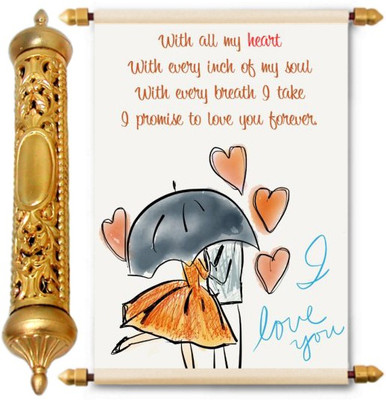 With all my heart
With every inch of my soul
With every breath I take
I promise to love you forever.
I
love
you